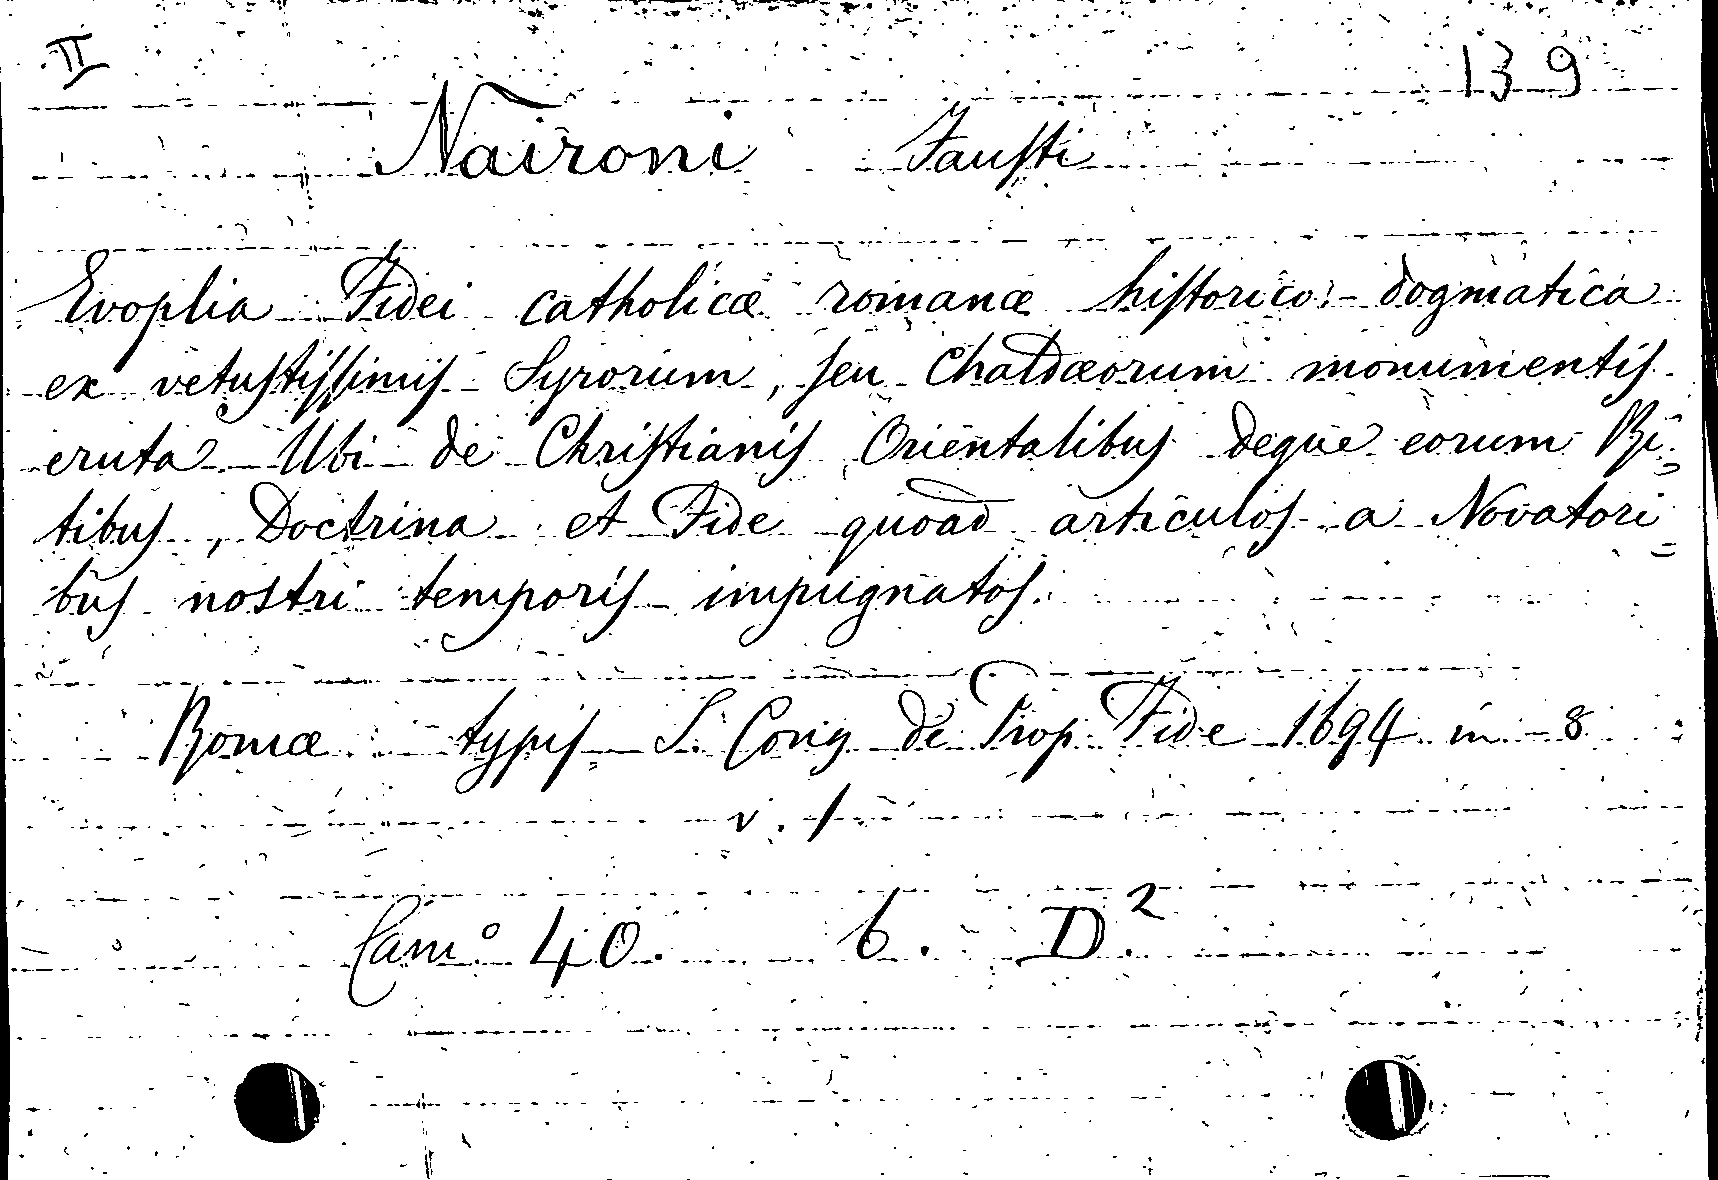 II 139
Naironi Fausti
Evoplia Fidei catholicæ romanæ historico-dogmatica
ex vetustissimis Syrorum, seu Chaldæorum monumentis
eruta Ubi de Christianis Orientalibus deque eorum Ri=
tibus, Doctrina et Fide quoad articulos a Novatori=
bus nostri temporis impugnatos.
Romæ typis S. Cong de Prop Fide 1694 in 8
v. 1
Cam° 40. b. D.²